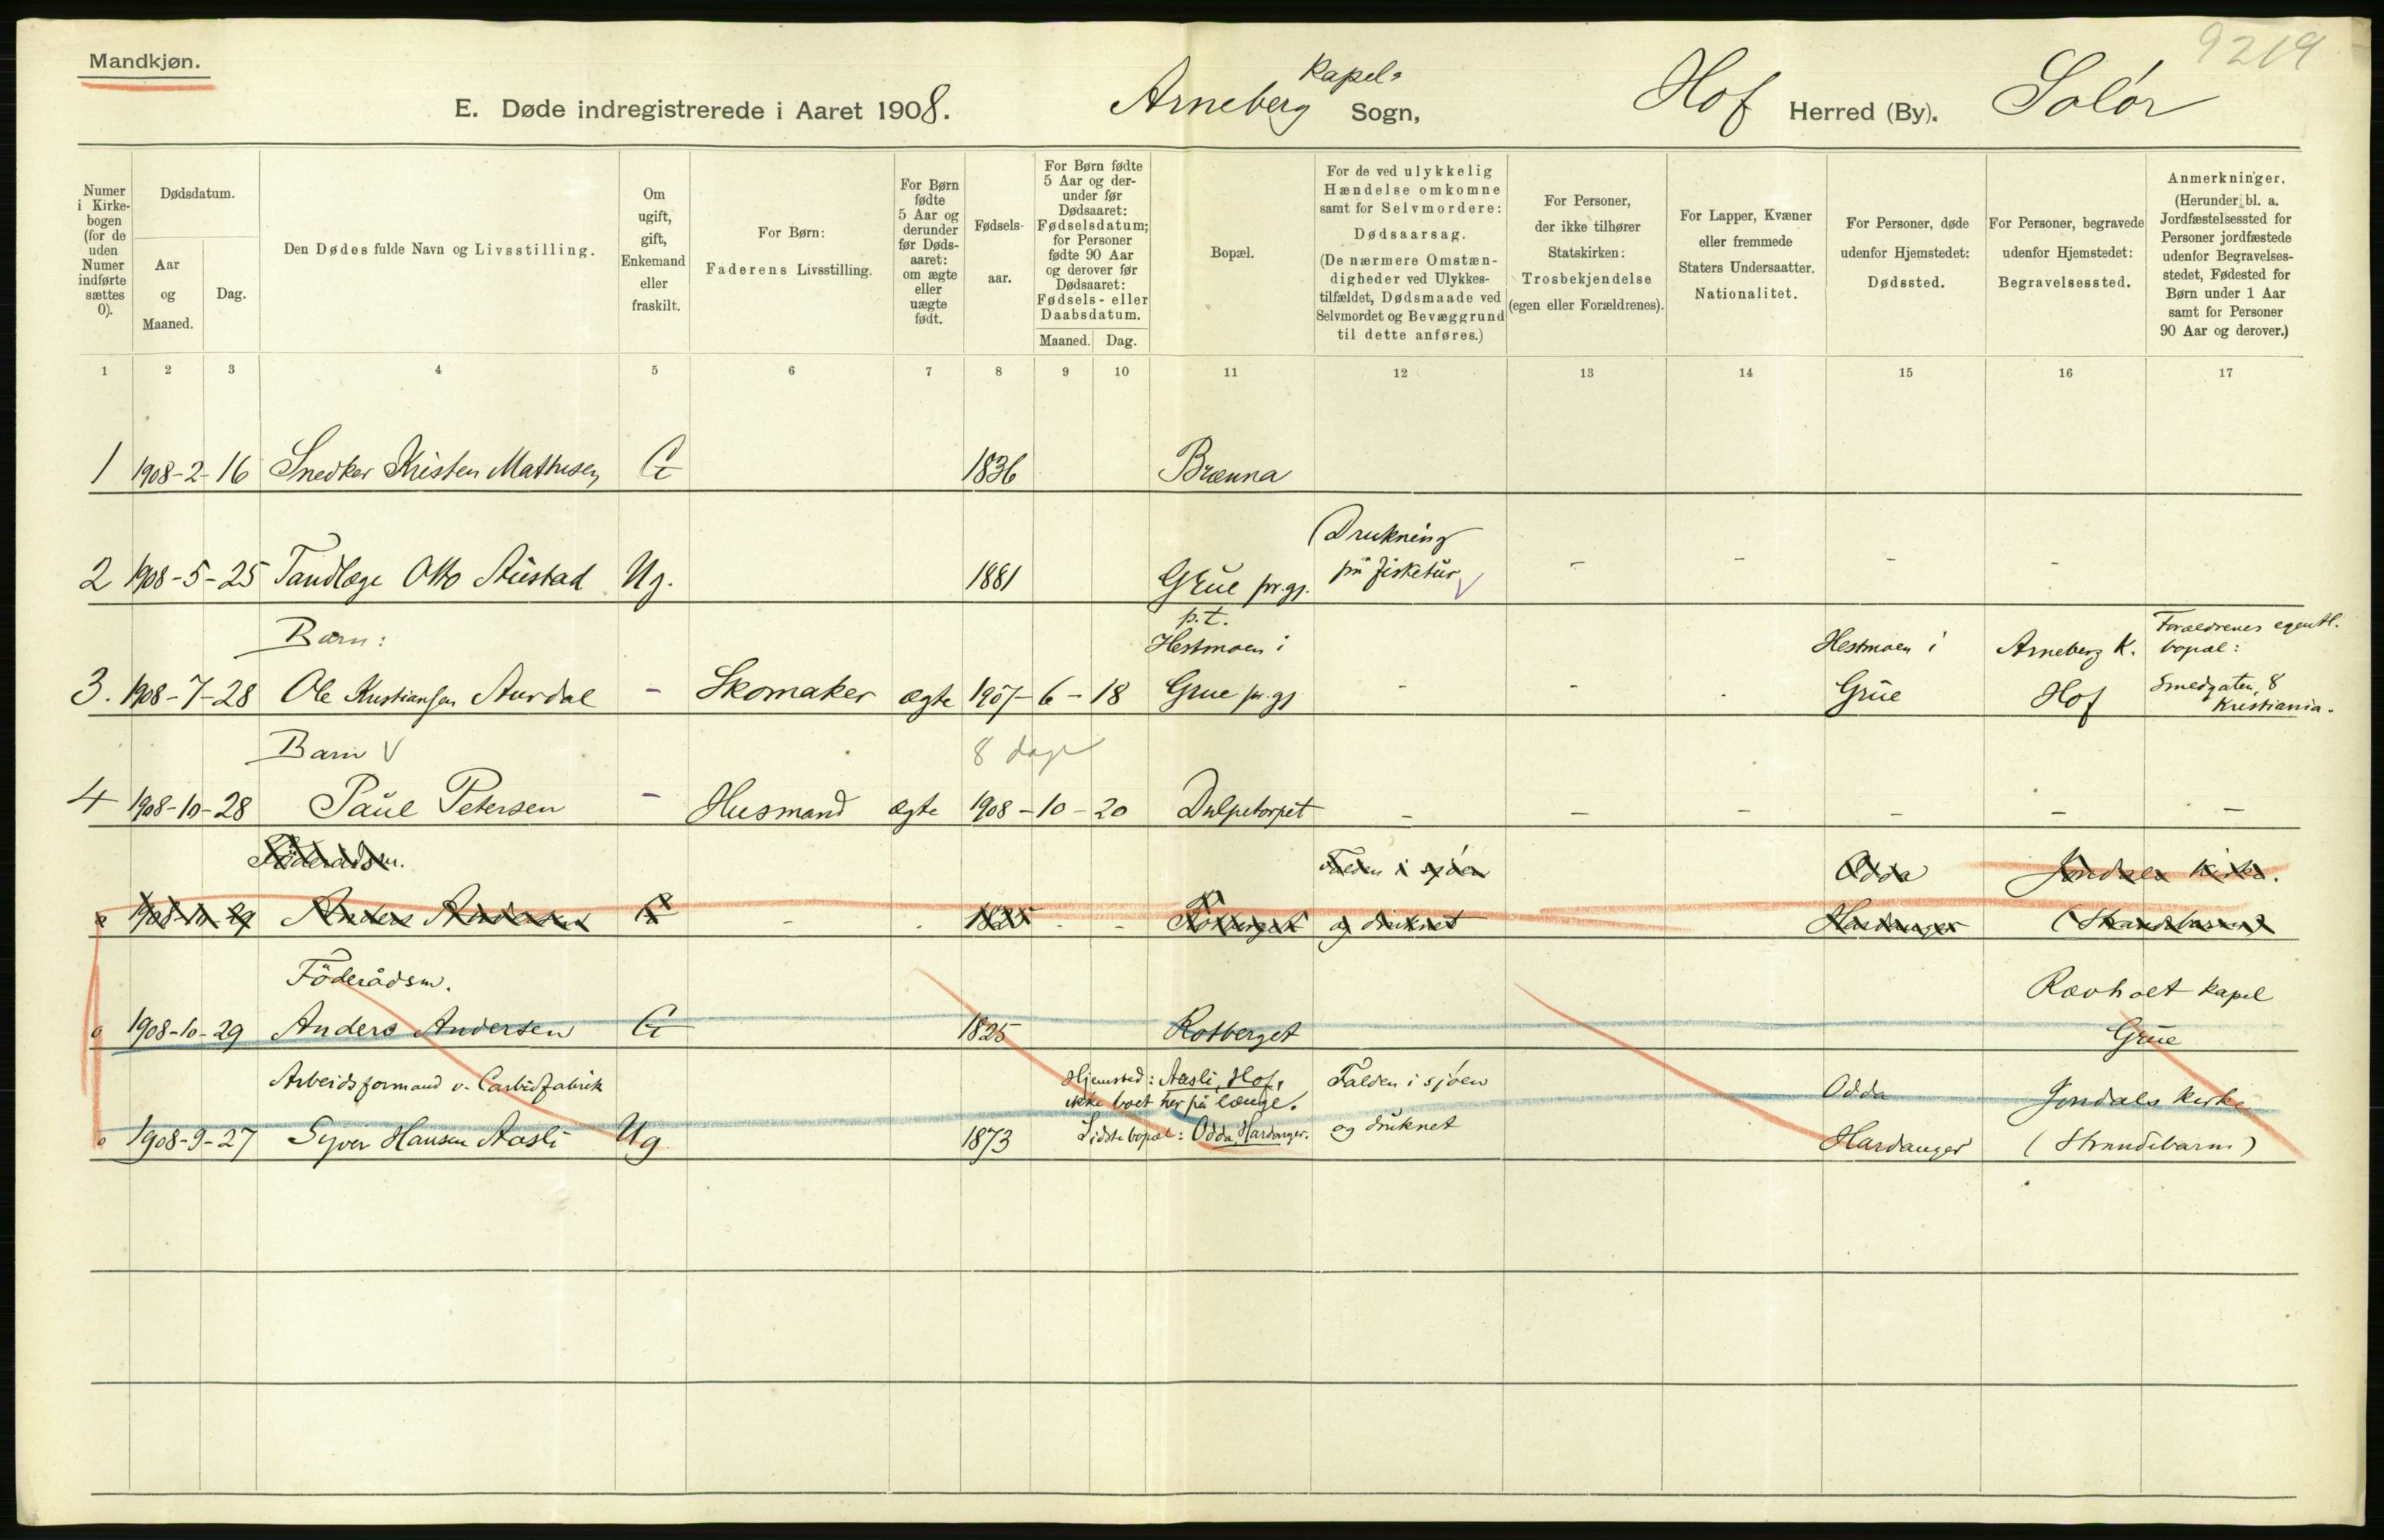 9219
Mandkjøn.
E. Døde indregistrerede i Aaret 1908. Arneberg Kapel- Sogn, Hof Herred (By). Solør
Numer
i Kirke-
bogen
(for de
uden
Numer
indførte
sættes
0).
Dødsdatum.
Aar
og
Maaned.
Dag.
Den Dødes fulde Navn og Livsstilling.
Om
ugift,
gift,
Enkemand
eller
fraskilt.
For Børn:
Faderens Livsstilling.
For Børn
fødte
5 Aar og
derunder
før Døds-
aaret:
om ægte
eller
uægte
født.
Fødsels-
aar.
For Børn fødte
5 Aar og der-
under før
Dødsaaret:
Fødselsdatum;
for Personer
fødte 90 Aar
og derover før
Dødsaaret:
Fødsels- eller
Daabsdatum.
Maaned. Dag.
Bopæl.
For de ved ulykkelig
Hændelse omkomne
samt for Selvmordere:
Dødsaarsag.
(De nærmere Omstæn-
digheder ved Ulykkes-
tilfældet, Dødsmaade ved
Selvmordet og Bevæggrund
til dette anføres.)
For Personer,
der ikke tilhører
Statskirken:
Trosbekjendelse
(egen eller Forældrenes).
For Lapper, Kvæner
eller fremmede
Staters Undersaatter.
Nationalitet.
For Personer, døde
udenfor Hjemstedet:
Dødssted.
For Personer, begravede
udenfor Hjemstedet:
Begravelsessted.
Anmerkninger.
(Herunder bl. a.
Jordfæstelsessted for
Personer jordfæstede
udenfor Begravelses-
stedet, Fødested for
Børn under 1 Aar
samt for Personer
90 Aar og derover.)
1 2 3 4 5 6 7 8 9 10 11 12 13 14 15 16 17
1 1908-2-16 Snedker Kristen Mathisen G 1836 Brænna
Drukning
2 1908-5-25 Tandlæge Otto Austad Ug. 1881 Grue pr.gj. på fisketur - - - -
Barn: p.t. Hestmoen i Hestmoen i Arneberg K. Forældrenes egentl. bopæl:
3. 1908-7-28 Ole Kristiansen Aurdal - Skomaker ægte 1907-6-18 Grue pr.gj. - - Grue Hof Smedgaten 8 Kristiania.
Barn V 8 dage
4 1908-10-28 Paul Petersen - Husmand ægte 1908-10-20 Dulpetorpet - - - - - -
Föderådsm. Falden i sjøen Odda Jondals kirke.
0 1908-10-29 Anders Andersen G - 1825 - Rotberget og druknet Hardanger (Strandebarm)
Föderådsm. Rævholt kapel
0 1908-10-29 Anders Andersen G 1825 Rotberget Grue
Arbeidsformand v. Carbidfabrik Hjemsted: Aasli, Hof, Falden i sjøen Odda Jondals kirke
ikke boet her på længe.
0 1908-9-27 Syver Hansen Aasli Ug 1873 Sidste bopæl: Odda, Hardanger. og druknet Hardanger (Strandebarm)